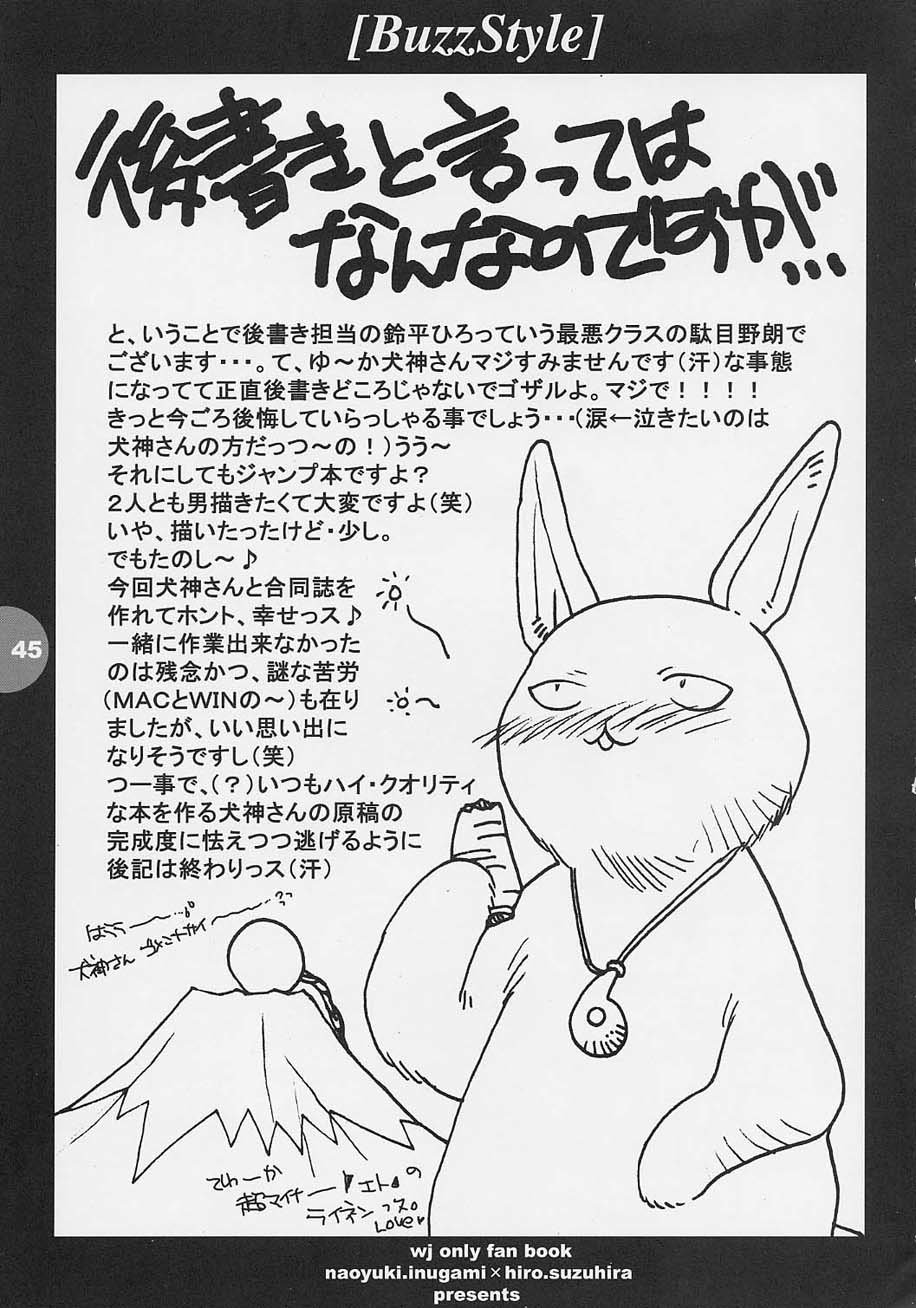 [BuzzStyle]
後書きと言っては
なんなのですが…
と、いうことで後書き担当の鈴平ひろっていう最悪クラスの駄目野朗で
ございます・・・。て、ゆ～か犬神さんマジすみませんです（汗）な事態
になってて正直後書きどころじゃないでゴザルよ。マジで！！！！
きっと今ごろ後悔していらっしゃる事でしょう・・・（涙←泣きたいのは
犬神さんの方だっつ～の！）うう～
それにしてもジャンプ本ですよ？
２人とも男描きたくて大変ですよ（笑）
いや、描いたったけど・少し。
でもたのし～♪
今回犬神さんと合同誌を
作れてホント、幸せっス♪
一緒に作業出来なかった
のは残念かつ、謎な苦労
（MACとWINの～）も在り
ましたが、いい思い出に
なりそうですし（笑）
つー事で、（？）いつもハイ・クオリティ
な本を作る犬神さんの原稿の
完成度に怯えつつ逃げるように
後記は終わりっス（汗）
犬神さん ゴメンナサイ～～
45
てゆーか
超マイナー「エト」の
ライネンっス。
Love
wj only fan book
naoyuki.inugami×hiro.suzuhira
presents